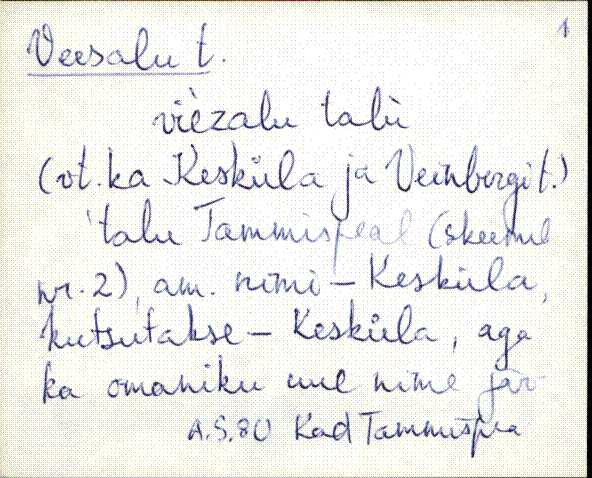 1
Veesalu t.
vièzalu talù
(vt. ka Kesküla ja Veinbergi t.)
talu Tammispeal (skeemil
nr. 2), am. nimi – Kesküla,
kutsutakse – Kesküla, aga
ka omaniku uue nime jär-
A.S. 80 Kad Tammispea